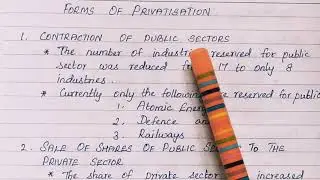 FORMS OF PRIVATISATION
1. CONTRACTION OF PUBLIC SECTORS
* The number of industri reserved for public
sector was reduced f 17 to only 8
industries.
* Currently only the followi e reserved for public
1. Atomic Energ
2. Defence an
3. Railways
2. SALE OF SHARES OF PUBLIC SE TO THE
PRIVATE SECTOR
* The share of private sector increased